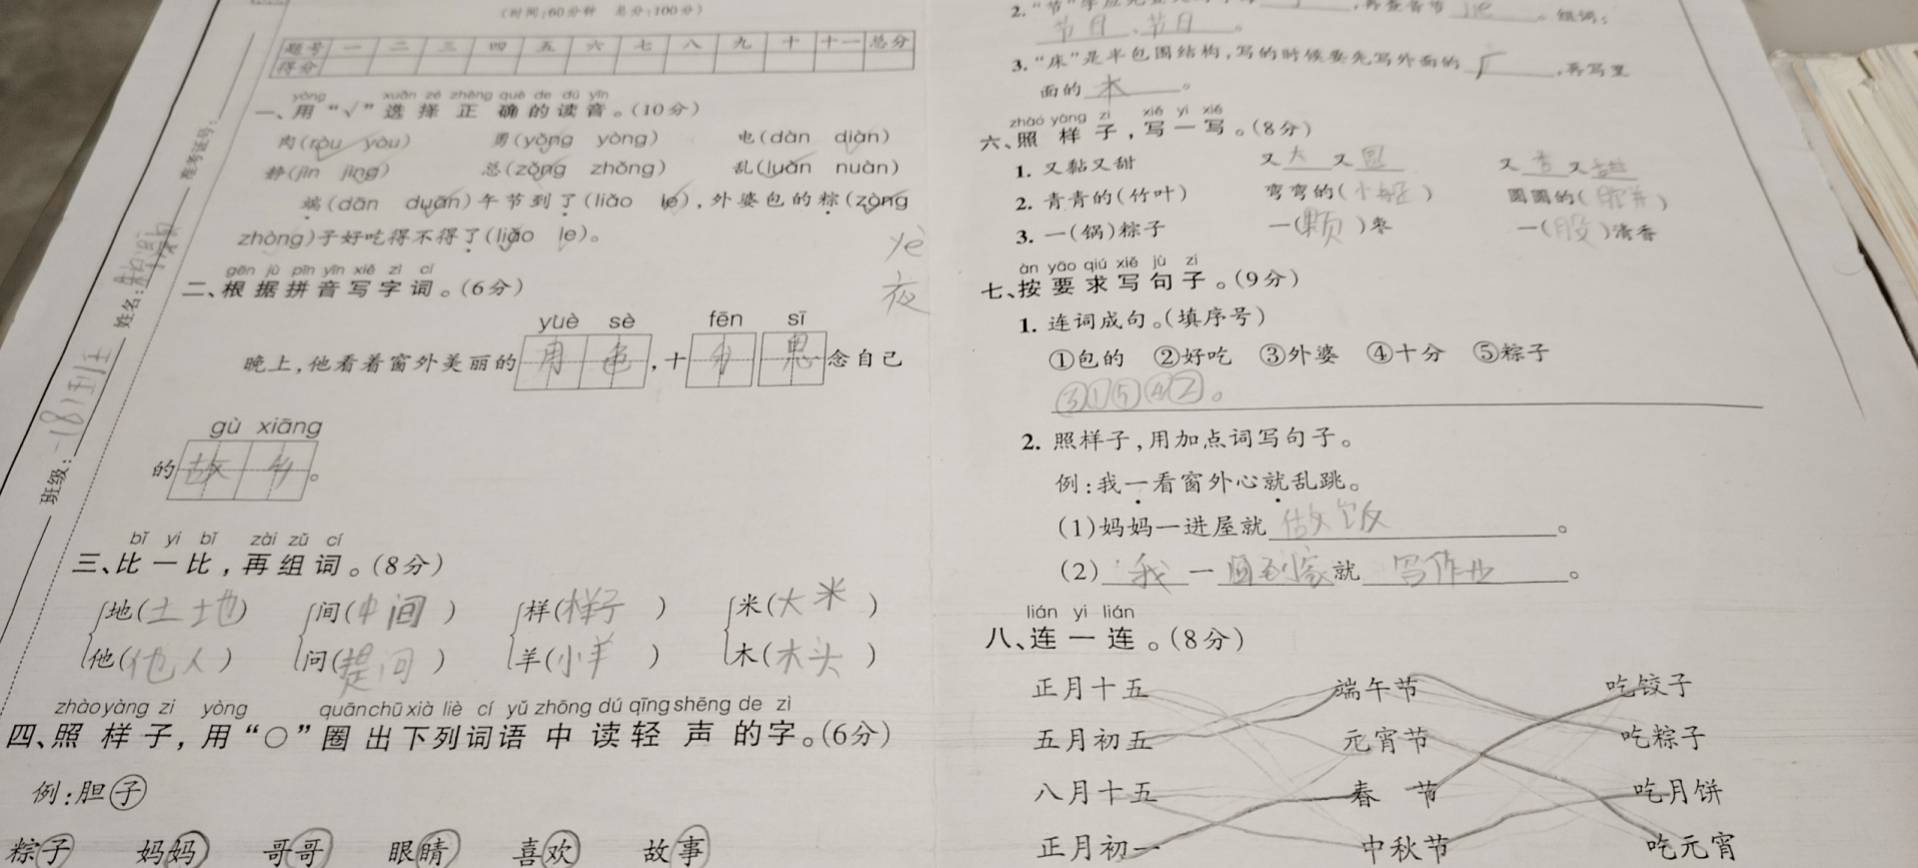 (时间:60分钟 总分:100分)
题号 一 二 三 四 五 六 七 八 九 十 十一 总分
得分
准考证号:
姓名:
班级:
yòng xuǎn zé zhèng què de dú yīn
一、用“√”选择正确的读音。(10分)
肉(ròu yòu) 勇(yǒng yòng) 电(dàn diàn)
静(jìn jìng) 总(zǒng zhǒng) 乱(luàn nuàn)
端(dān duān)午节到了(liǎo le),外婆包的粽(zòng
zhòng)子好吃得不得了(liǎo le)。
yè
夜
gēn jù pīn yīn xiě zì cí
二、根据拼音写字词。(6分)
yuè sè fēn sī
晚上,他看着窗外美丽的月色,十分思念自己
gù xiāng
的故乡。
bǐ yi bǐ zài zǔ cí
三、比一比,再组词。(8分)
地(土地) 间(中间) 样(样子) 米(大米)
他(他人) 问(提问) 羊(小羊) 木(木头)
zhào yàng zi yòng quān chū xià liè cí yǔ zhōng dú qīng shēng de zì
四、照样子,用“○”圈出下列词语中读轻声的字。(6分)
例:胆子
粽子 妈妈 哥哥 眼睛 喜欢 故事
节日、节日。
3.“床”是半包围结构,写的时候要先写外面的广,再写里
面的木。
zhào yàng zi xiě yi xiě
六、照样子,写一写。(8分)
1. 又黏又甜 又大又圆 又香又甜
2. 青青的(竹叶) 弯弯的(小船) 圆圆的( )
3. 一(锅)粽子 一(颗)枣 一(股)清香
àn yāo qiú xiě jù zi
七、按要求写句子。(9分)
1. 连词成句。(填序号)
①包的 ②好吃 ③外婆 ④十分 ⑤粽子
③①⑤④②。
2. 照样子,用加点词写句子。
例:我一看窗外心就乱跳。
(1)妈妈一进屋就做饭。
(2)我一回到家就写作业。
lián yi lián
八、连一连。(8分)
正月十五 端午节 吃饺子
五月初五 元宵节 吃粽子
八月十五 春节 吃月饼
正月初一 中秋节 吃元宵